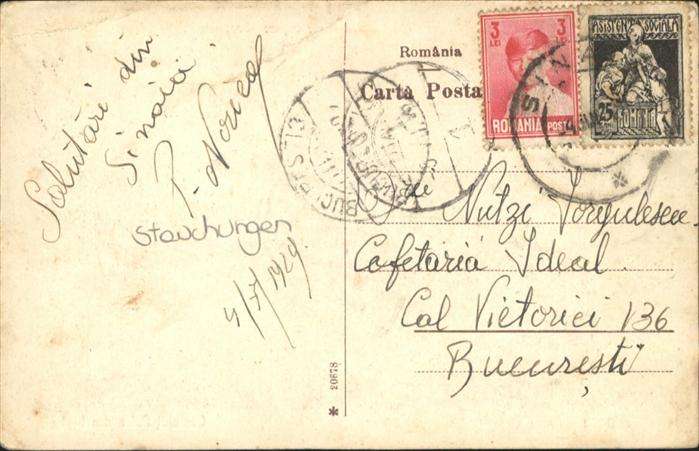 Salutări din
Sinaia
P. Norica
Stauchungen
4/7/1929
România
Carta Posta
3 LEI
3 LEI
ROMANIA POSTA
ASISTENȚA SOCIALĂ
25
SINAIA
BUCUREȘTI
Nutzi Iorgulescu
Cofetăria Ideal.
Cal Victoriei 136
București
* 20678